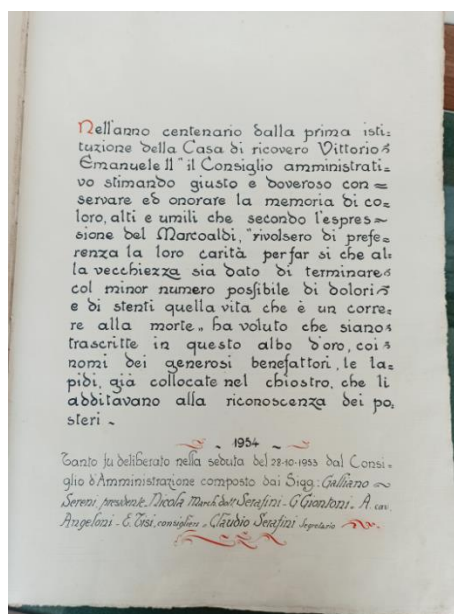 Nell'anno centenario dalla prima isti=
tuzione della Casa di ricovero Vittorio
Emanuele II" il Consiglio amministrati=
vo stimando giusto e doveroso con=
servare ed onorare la memoria di co=
loro, alti e umili che secondo l'espres=
sione del Marcoaldi, "rivolsero di prefe=
renza la loro carità per far si che al=
la vecchiezza sia dato di terminare
col minor numero possibile di dolori
e di stenti quella vita che è un corre=
re alla morte„ ha voluto che siano
trascritte in questo albo d'oro, coi
nomi dei generosi benefattori, le la=
pidi, già collocate nel chiostro, che li
additavano alla riconoscenza dei po=
steri -
- 1954 -
Tanto fu deliberato nella seduta del 28-10-1953 dal Consi=
glio d'Amministrazione composto dai Sigg: Galliano
Sereni, presidente. Nicola March. dott. Serafini - G Giontoni. A. cav.
Angeloni - E. Tisi, consiglieri - Claudio Serafini Segretario